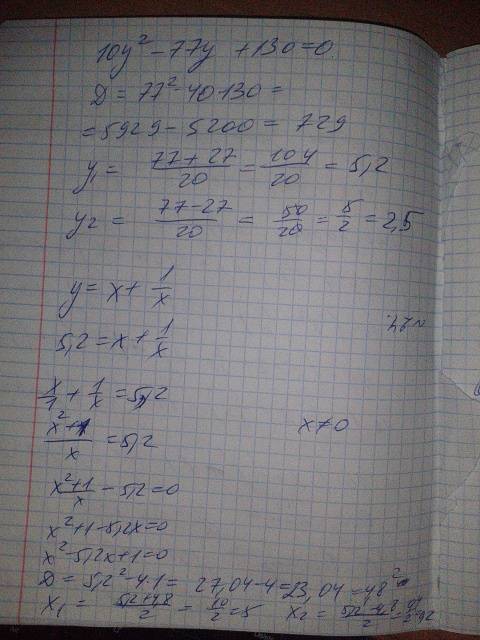 10y² - 77y + 130 = 0.
D = 77² - 40·130 =
= 5929 - 5200 = 729
y₁ = (77+27)/20 = 104/20 = 5,2
y₂ = (77-27)/20 = 50/20 = 5/2 = 2,5
y = x + 1/x
5,2 = x + 1/x
x/1 + 1/x = 5,2
(x²+1)/x = 5,2 x≠0
(x²+1)/x - 5,2 = 0
x² + 1 - 5,2x = 0
x² - 5,2x + 1 = 0
D = 5,2² - 4·1 = 27,04 - 4 = 23,04 = 48²
x₁ = (5,2+4,8)/2 = 10/2 = 5 x₂ = (5,2-4,8)/2